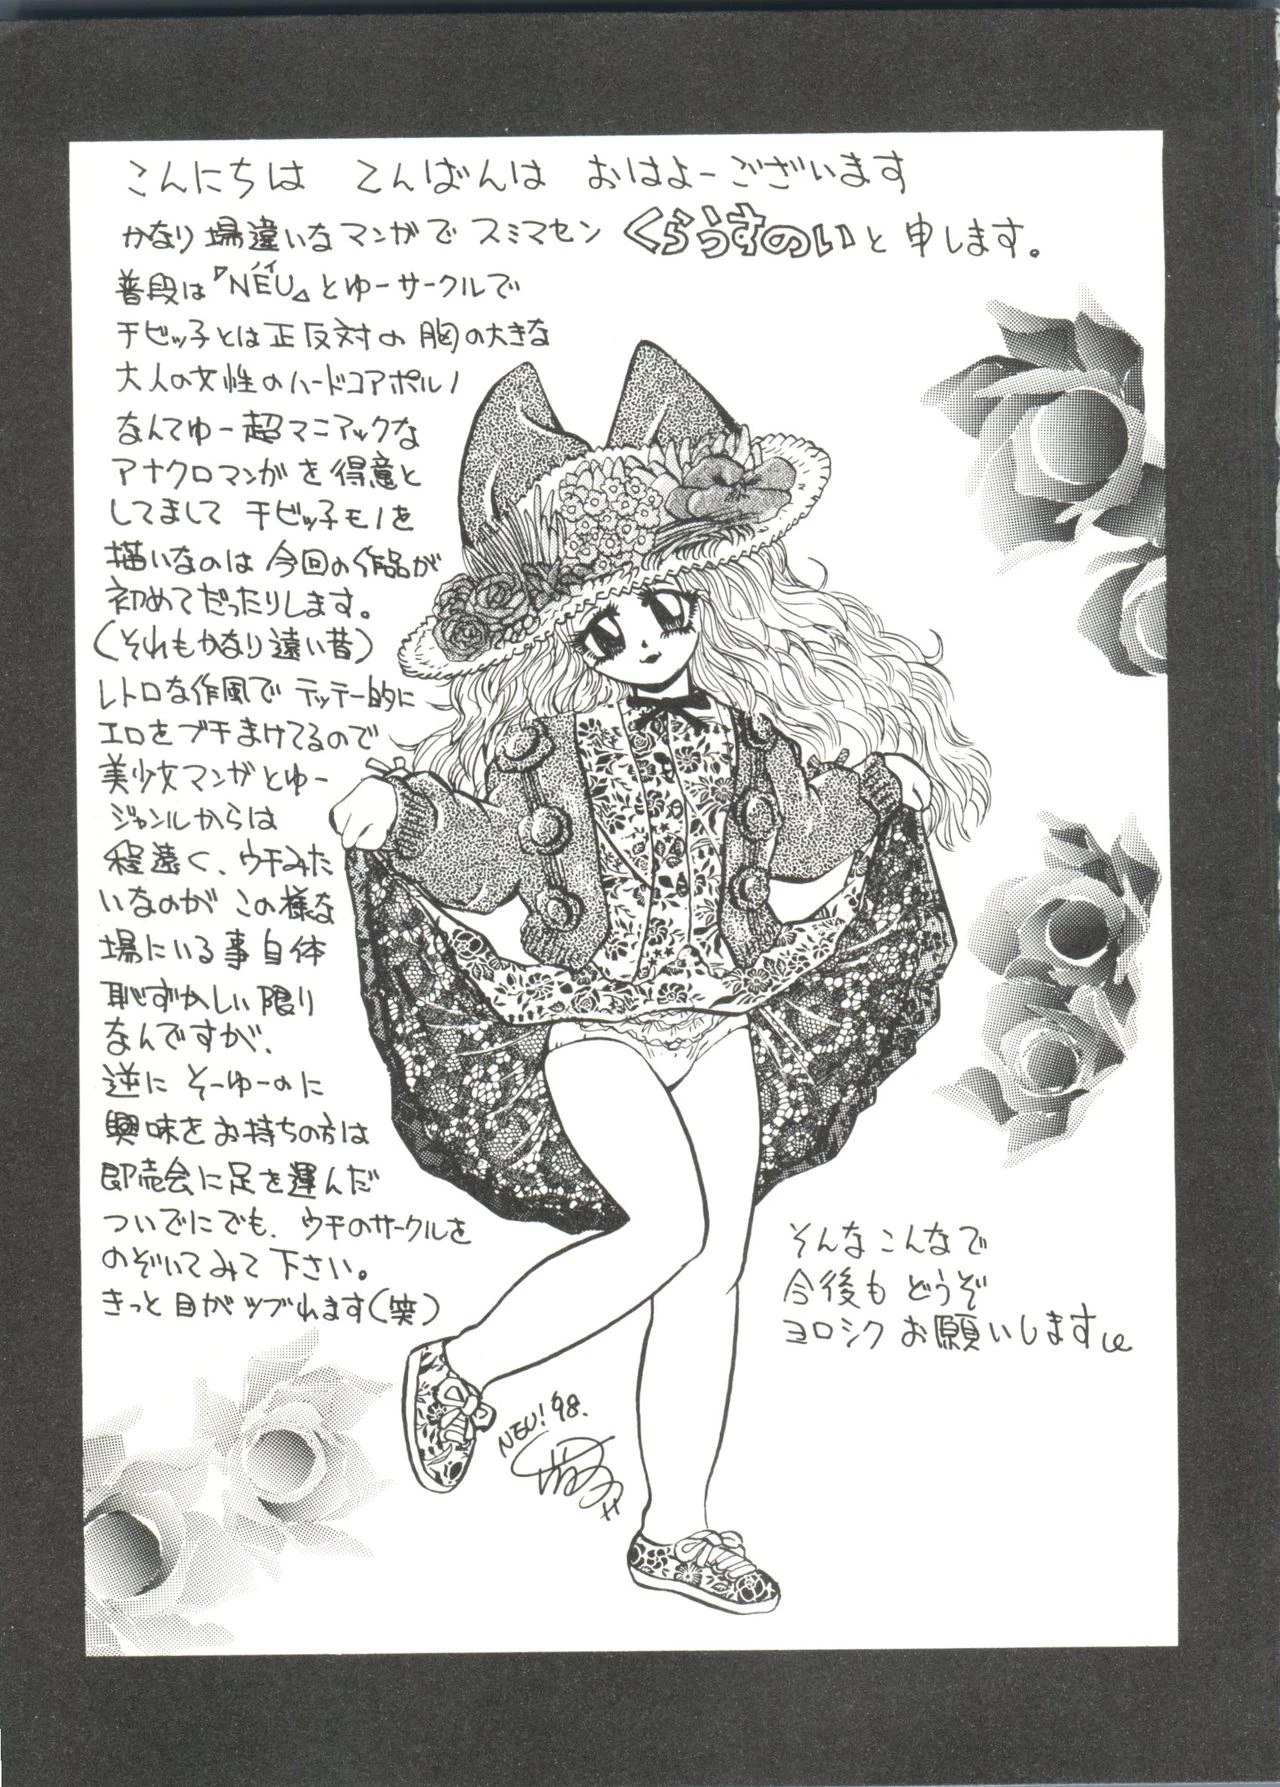 こんにちは こんばんは おはよーございます
かなり場違いなマンガで スミマセン くらうすのいと申します。
ノイ
普段は『NEU』とゆーサークルで
チビッ子とは正反対の胸の大きな
大人の女性のハードコアポルノ
なんてゆー超マニアックな
アナクロマンガを得意と
してまして チビッ子モノを
描いなのは今回の作品が
初めてだったりします。
(それもかなり遠い昔)
レトロな作風で テッテー的に
エロをブチまけてるので
美少女マンガとゆー
ジャンルからは
程遠く、ウチみた
いなのが この様な
場にいる事自体
恥ずかしい限り
なんですが、
逆に そーゆーのに
興味をお持ちの方は
即売会に足を運んだ
ついでにでも、ウチのサークルを
のぞいてみて下さい。
きっと目がツブれます(笑)
そんなこんなで
今後も どうぞ
ヨロシク お願いします
NEU! '98.